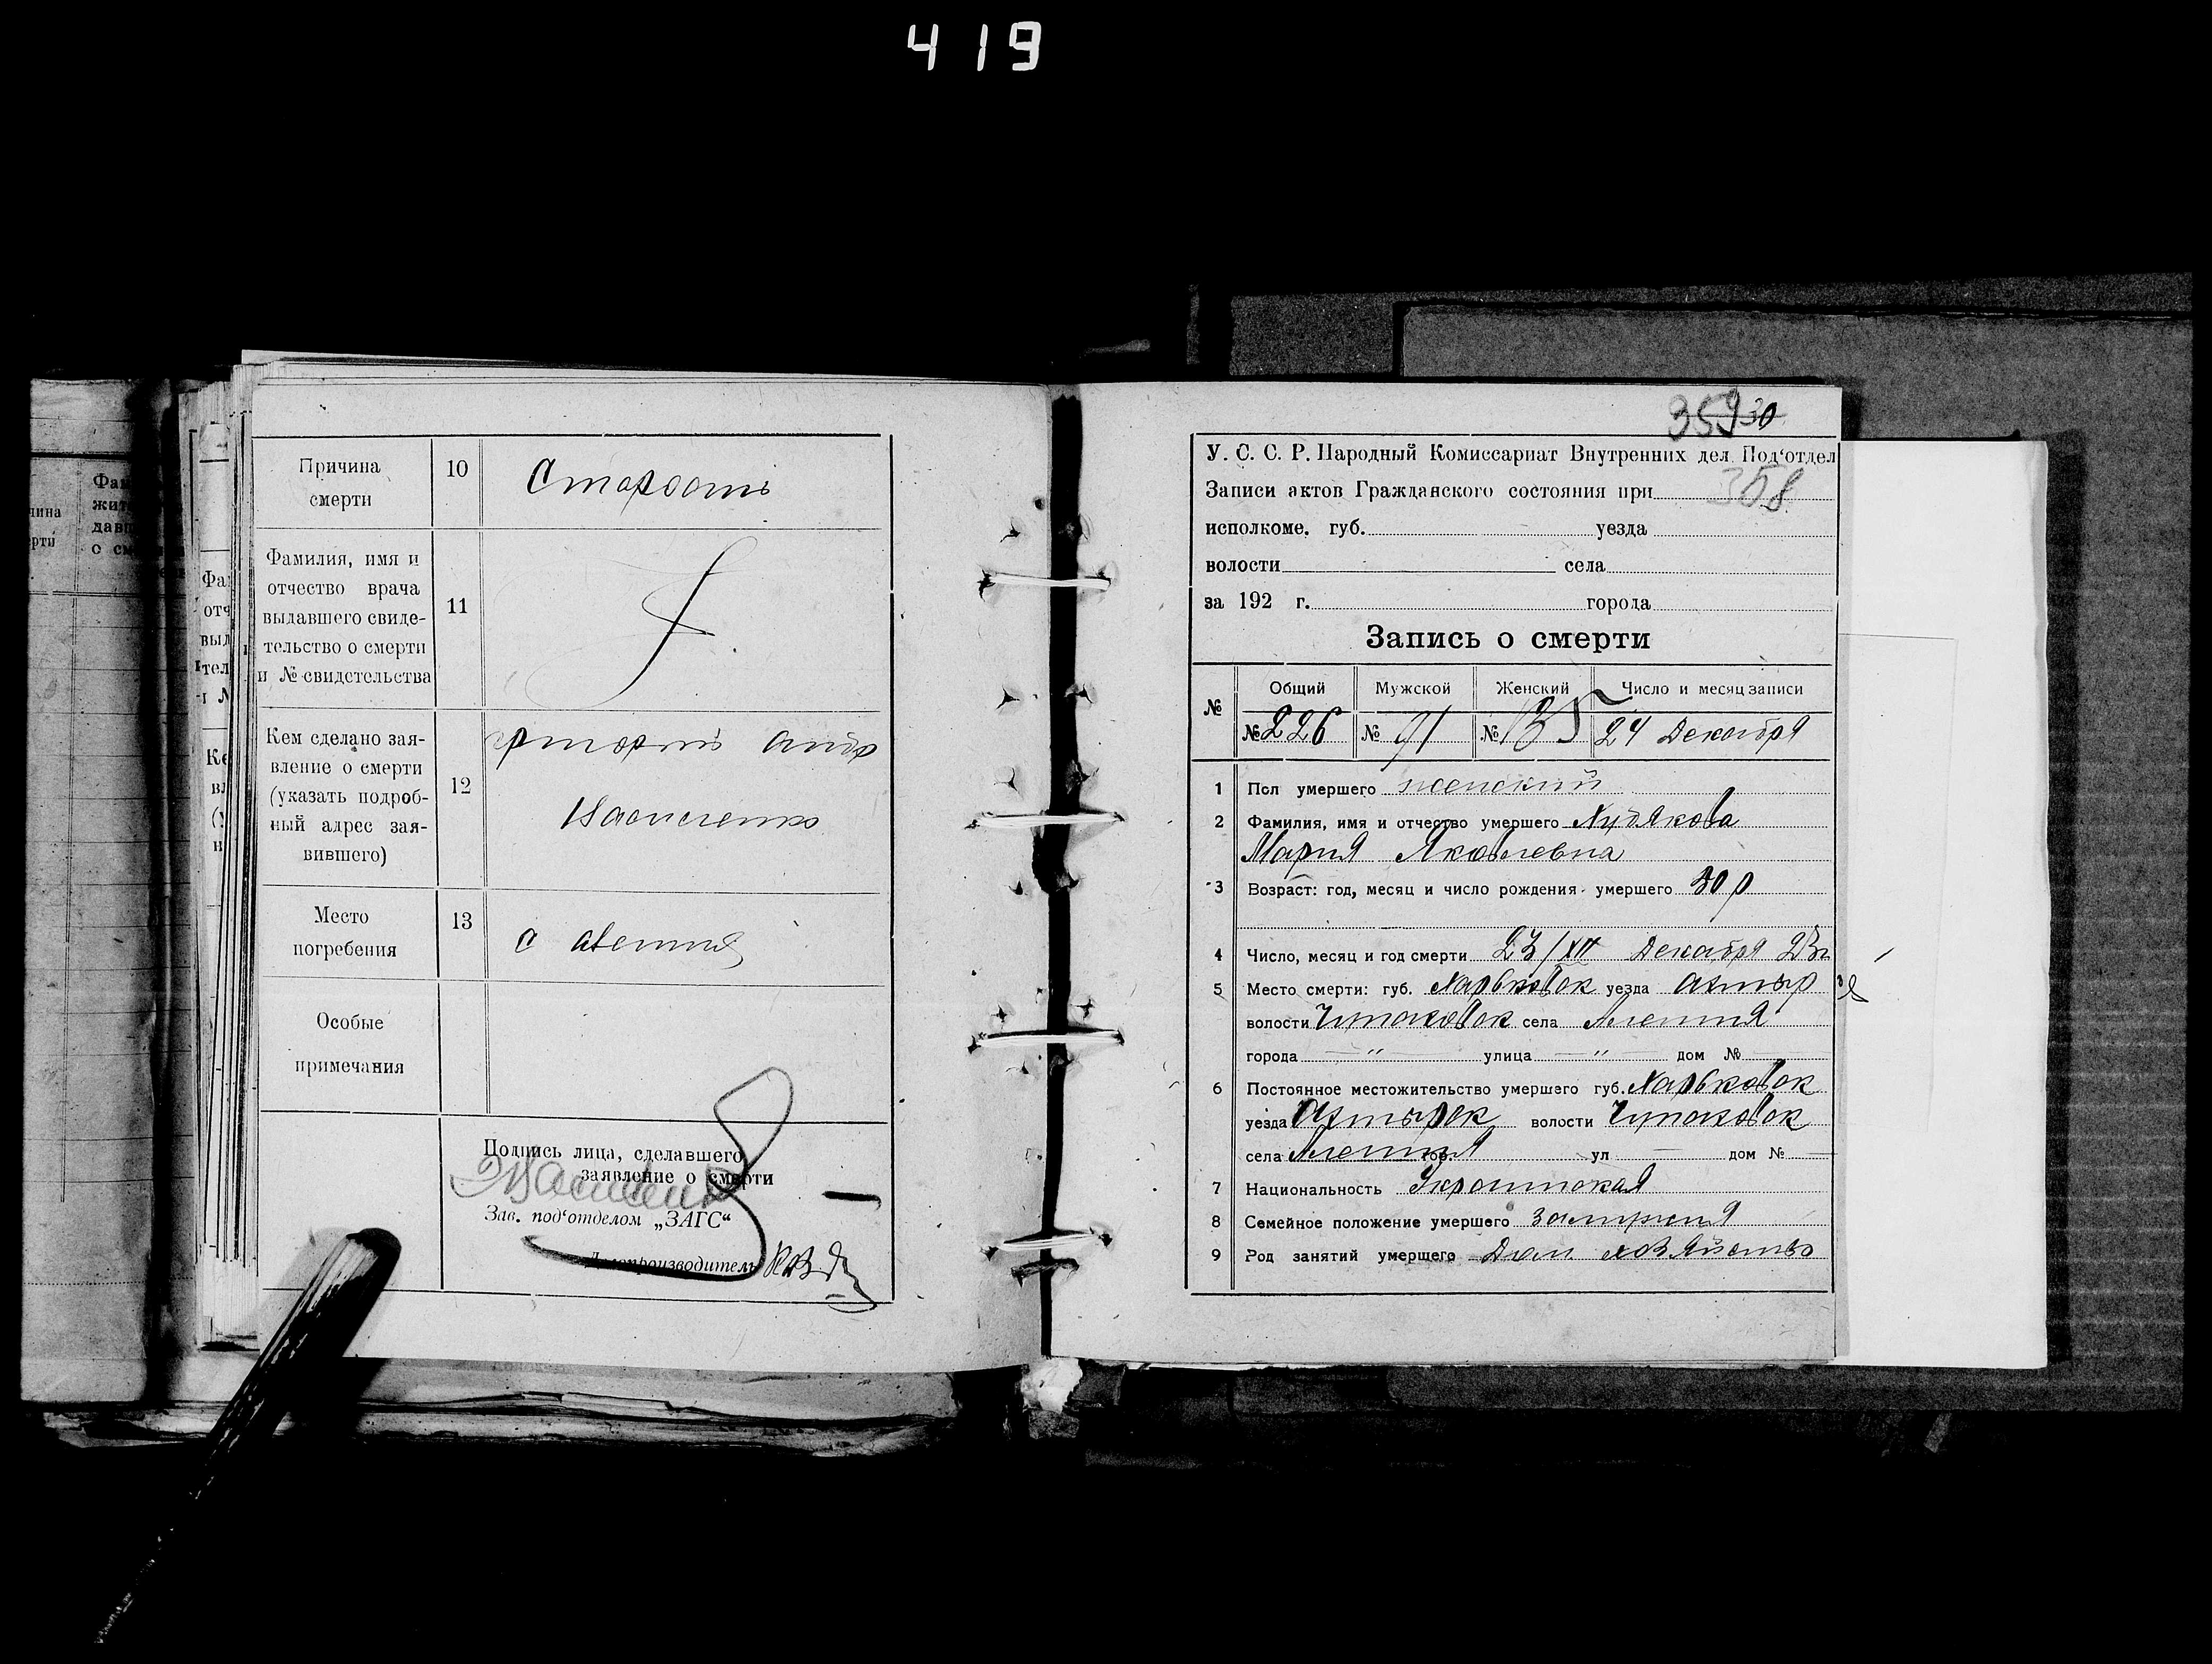 419
Причина смерти
10
Старость
Фамилия, имя и
отчество врача
выдавшего свиде-
тельство о смерти
и № свидетельства
11
Кем сделано зая-
вление о смерти
(указать подроб-
ный адрес зая-
вившего)
12
Место
погребения
13
с
Особые
примечания
Подпись лица, сделавшего
заявление о смерти
Зав. под'отделом „ЗАГС“
Делопроизводитель
359 30
У. С. С. Р. Народный Комиссариат Внутренних дел. Под'отдел
358
Записи актов Гражданского состояния при
исполкоме. губ. уезда
волости села
за 192 г. города
Запись о смерти
№ Общий Мужской Женский Число и месяц записи
№ 226 № 91 № 135 24 Декабря
1 Пол умершего женский
2 Фамилия, имя и отчество умершего Худякова
Мария Яковлевна
3 Возраст: год, месяц и число рождения умершего
4 Число, месяц и год смерти 23/XII Декабря 23г
5 Место смерти: губ. Харьковск уезда Ахтыр
волости Чупаховск села
города — " — улица — " — дом № —
6 Постоянное местожительство умершего губ. Харьковск
уезда Ахтырск волости Чупаховск
села гор. ул — дом № —
7 Национальность Украинская
8 Семейное положение умершего
9 Род занятий умершего Дом хозяйство